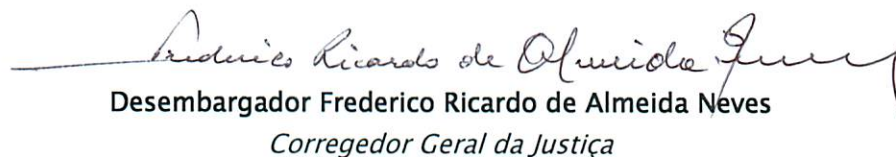 Frederico Ricardo de Almeida Neves
Desembargador Frederico Ricardo de Almeida Neves
Corregedor Geral da Justiça